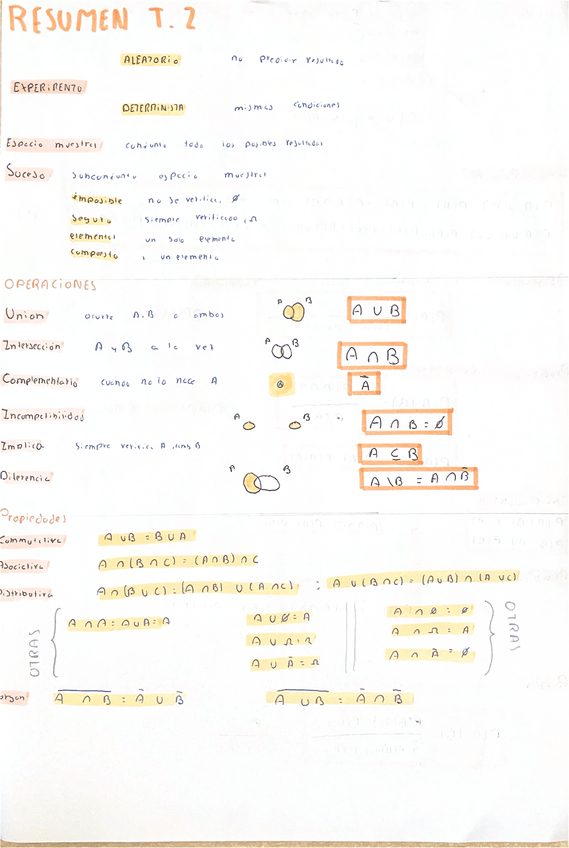 RESUMEN T. 2
ALEATORIO no predecir resultado
EXPERIMENTO
DETERMINISTA mismas condiciones
Espacio muestral conjunto todo los posibles resultados
Suceso subconjunto espacio muestral
imposible no se verifica, ∅
seguro siempre verificado, Ω
elemental un solo elemento
compuesto un elemento
OPERACIONES
Union ocurre A, B o ambos A B A ∪ B
Intersección A y B a la vez A B A ∩ B
Complementario cuando no lo hace A Ā
Incompatibilidad A B A ∩ B = ∅
Implica siempre verifica A B A ⊆ B
Diferencia A B A \ B = A ∩ B̄
Propiedades
Conmutativa A ∪ B = B ∪ A
Asociativa A ∩ (B ∩ C) = (A ∩ B) ∩ C
Distributiva A ∩ (B ∪ C) = (A ∩ B) ∪ (A ∩ C) ; A ∪ (B ∩ C) = (A ∪ B) ∩ (A ∪ C)
OTRAS
A ∩ A = A ∪ A = A
A ∪ ∅ = A
A ∪ Ω = Ω
A ∪ Ā = Ω
A ∩ ∅ = ∅
A ∩ Ω = A
A ∩ Ā = ∅
OTRAS
organ A̅ ̅∩̅ ̅B̅ = Ā ∪ B̄ A̅ ̅∪̅ ̅B̅ = Ā ∩ B̄